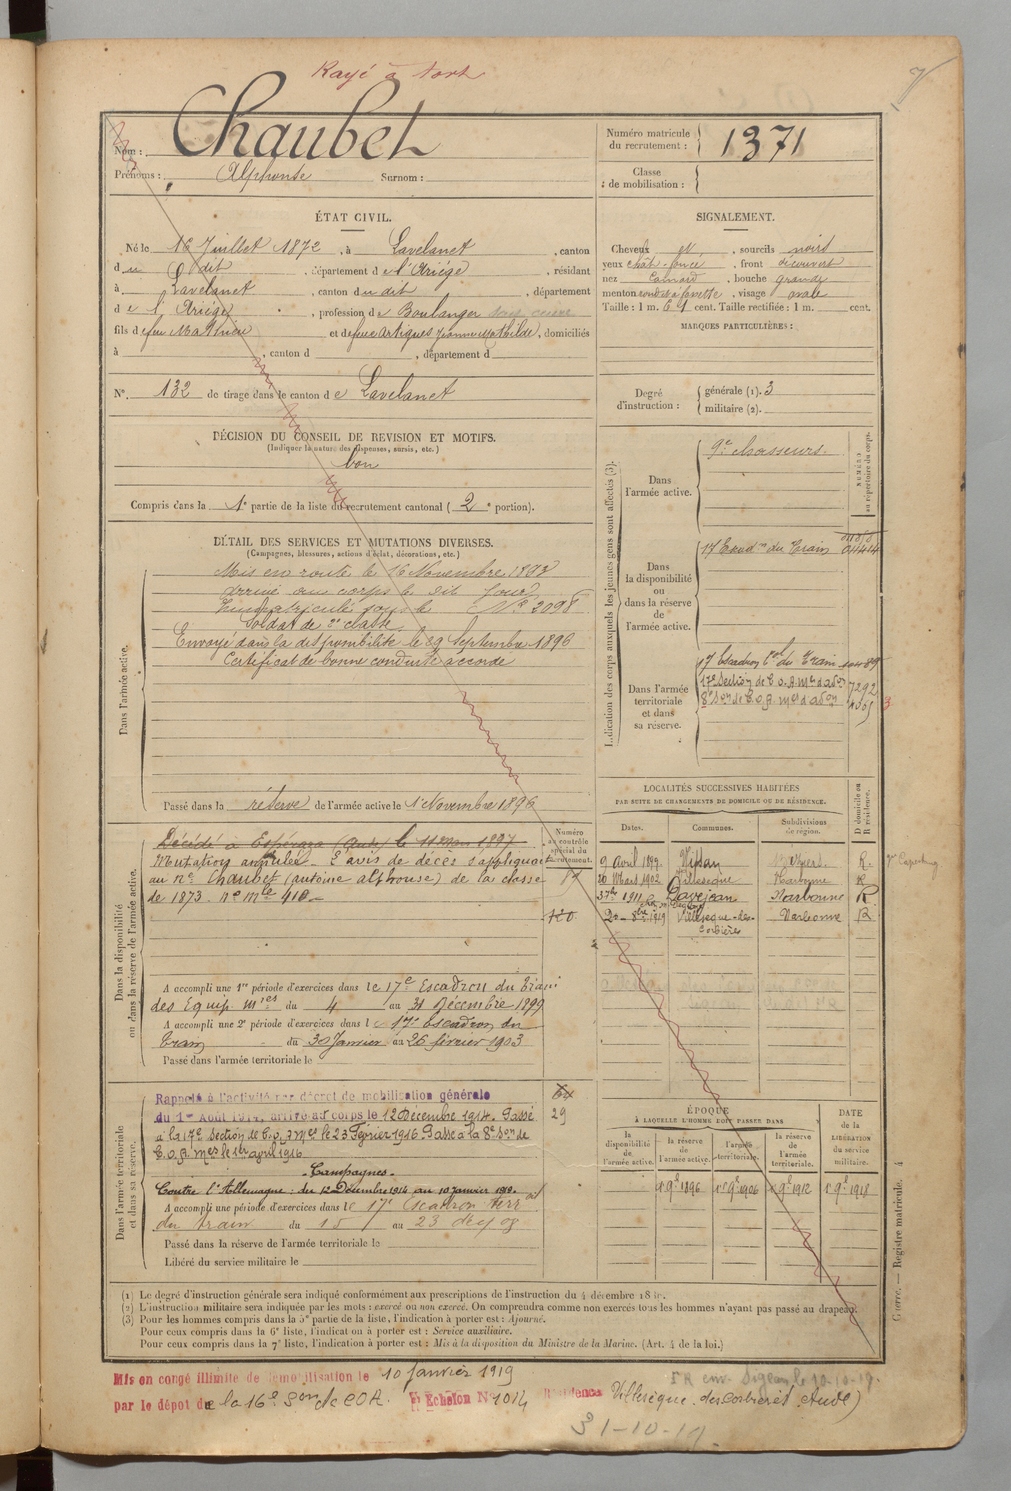 Rayé à tort
7
Nom : Chaubet
Prénoms : Alphonse Surnom :
Numéro matricule du recrutement : 1371
Classe de mobilisation :
ÉTAT CIVIL.
Né le 16 Juillet 1872, à Lavelanet, canton
du dit, département de l'Ariège, résidant
à Lavelanet, canton du dit, département
de l'Ariège, profession de Boulanger
fils de feu Mathieu et de feue Artigues Jeanne Mathilde, domiciliés
à , canton d , département d
N° 132 de tirage dans le canton de Lavelanet
SIGNALEMENT.
Cheveux et, sourcils noirs
yeux chât-foncé, front découvert
nez Camard, bouche grande
menton rond et à fossette, visage ovale
Taille : 1 m. 61 cent. Taille rectifiée : 1 m. cent.
MARQUES PARTICULIÈRES :
Degré d'instruction : générale (1). 3
militaire (2).
DÉCISION DU CONSEIL DE REVISION ET MOTIFS.
(Indiquer la nature des dispenses, sursis, etc.)
bon
Compris dans la 1e partie de la liste du recrutement cantonal ( 2e portion).
DÉTAIL DES SERVICES ET MUTATIONS DIVERSES.
(Campagnes, blessures, actions d'éclat, décorations, etc.)
Dans l'armée active.
Mis en route le 16 Novembre 1893
arrivé au corps le dit jour
Immatriculé sous le N° 2098
Soldat de 2e classe
Envoyé dans la disponibilité le 29 Septembre 1896
Certificat de bonne conduite accordé
Passé dans la réserve de l'armée active le 1 Novembre 1896
Indication des corps auxquels les jeunes gens sont affectés (3).
NUMÉRO au répertoire du corps.
Dans l'armée active.
9e Chasseurs.
Dans la disponibilité ou dans la réserve de l'armée active.
17 Escad on du Train
Dans l'armée territoriale et dans sa réserve.
17 Escadron tal du Train
17e Section de C.O.A. Mre d'adon 7292
8e Son de C.O.A. Mres d'adon
LOCALITÉS SUCCESSIVES HABITÉES
PAR SUITE DE CHANGEMENTS DE DOMICILE OU DE RÉSIDENCE.
Dates. Communes. Subdivisions de région. D domicile ou R résidence.
9 Avril 1899. Nissan Béziers R.
20 Mars 1902 Villesèque Narbonne R
1911 Davejean Narbonne R
1919 Villesèque-des-Corbières Narbonne R
Dans la disponibilité ou dans la réserve de l'armée active.
Numéro au contrôle spécial du recrutement.
Décédé à Espéraza (Aude) le 11 Mars 1897
Mutation annulée - L'avis de décès s'appliquait
au né Chaubet (Antoine alphonse) de la classe
de 1873. n° mle 410 -
A accompli une 1re période d'exercices dans le 17e Escadron du Train
des Equip. Mres du 4 au 31 Décembre 1899
A accompli une 2e période d'exercices dans le 17e Escadron du
Train du 30 Janvier au 26 février 1903
Passé dans l'armée territoriale le
Dans l'armée territoriale et dans sa réserve.
Rappelé à l'activité par décret de mobilisation générale
du 1er Août 1914, arrivé au corps le 12 Décembre 1914. Passé
à la 17e Section de C.O.A Mres le 23 Février 1916 Passé à la 8e Son de
C.O.A. Mres le 1er avril 1916
29
Campagnes.
Contre l'Allemagne : du 12 Décembre 1914 au 10 Janvier 1919.
A accompli une période d'exercices dans le 17e Escadron terr al
du train du 15 au 23
Passé dans la réserve de l'armée territoriale le
Libéré du service militaire le
ÉPOQUE À LAQUELLE L'HOMME DOIT PASSER DANS
DATE de la LIBÉRATION du service militaire.
la disponibilité de l'armée active. la réserve de l'armée active. l'armée territoriale. la réserve de l'armée territoriale.
1896 1906 1912 1918
(1) Le degré d'instruction générale sera indiqué conformément aux prescriptions de l'instruction du 4 décembre
(2) L'instruction militaire sera indiquée par les mots : exercé ou non exercé. On comprendra comme non exercés tous les hommes n'ayant pas passé au drapeau.
(3) Pour les hommes compris dans la 5e partie de la liste, l'indication à porter est : Ajourné.
Pour ceux compris dans la 6e liste, l'indication à porter est : Service auxiliaire.
Pour ceux compris dans la 7e liste, l'indication à porter est : Mis à la disposition du Ministre de la Marine. (Art. 4 de la loi.)
Guerre. — Registre matricule. 4
Mis en congé illimité de démobilisation le 10 Janvier 1919
par le dépôt de la 16e Son de COA. Echelon N° 1014 Résidence Villesèque des Corbières (Aude)
31-10-19.